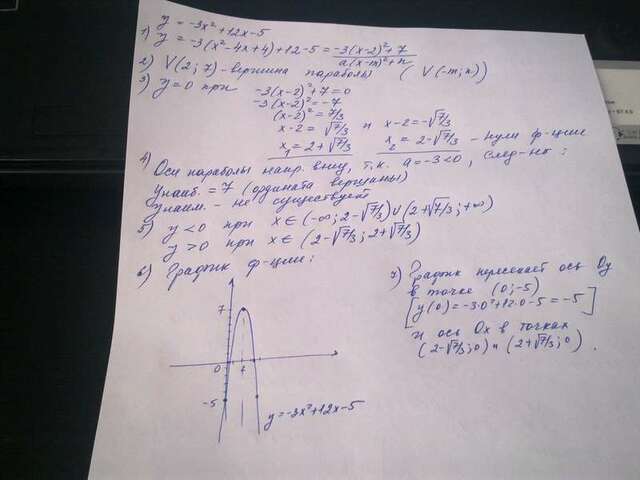 y = -3x²+12x-5
1) y = -3(x²-4x+4)+12-5 = -3(x-2)²+7
a(x-m)²+n
2) V(2;7) - вершина параболы ( V(-m;n))
3) y=0 при -3(x-2)²+7=0
-3(x-2)²=-7
(x-2)²=7/3
x-2=√7/3 и x-2=-√7/3
x₁=2+√7/3 x₂=2-√7/3 - нули ф-ции
4) Оси параболы напр. вниз, т.к. a=-3<0, след-но:
yнаиб.=7 (ордината вершины)
yнаим. - не существует
5) y<0 при x∈(-∞;2-√7/3)∪(2+√7/3;+∞)
y>0 при x∈(2-√7/3;2+√7/3)
6) График ф-ции:
7
0
-5
y=-3x²+12x-5
7) График пересекает ось Oy
в точке (0;-5)
[y(0)=-3·0²+12·0-5=-5]
и ось Ox в точках
(2-√7/3;0) и (2+√7/3;0).